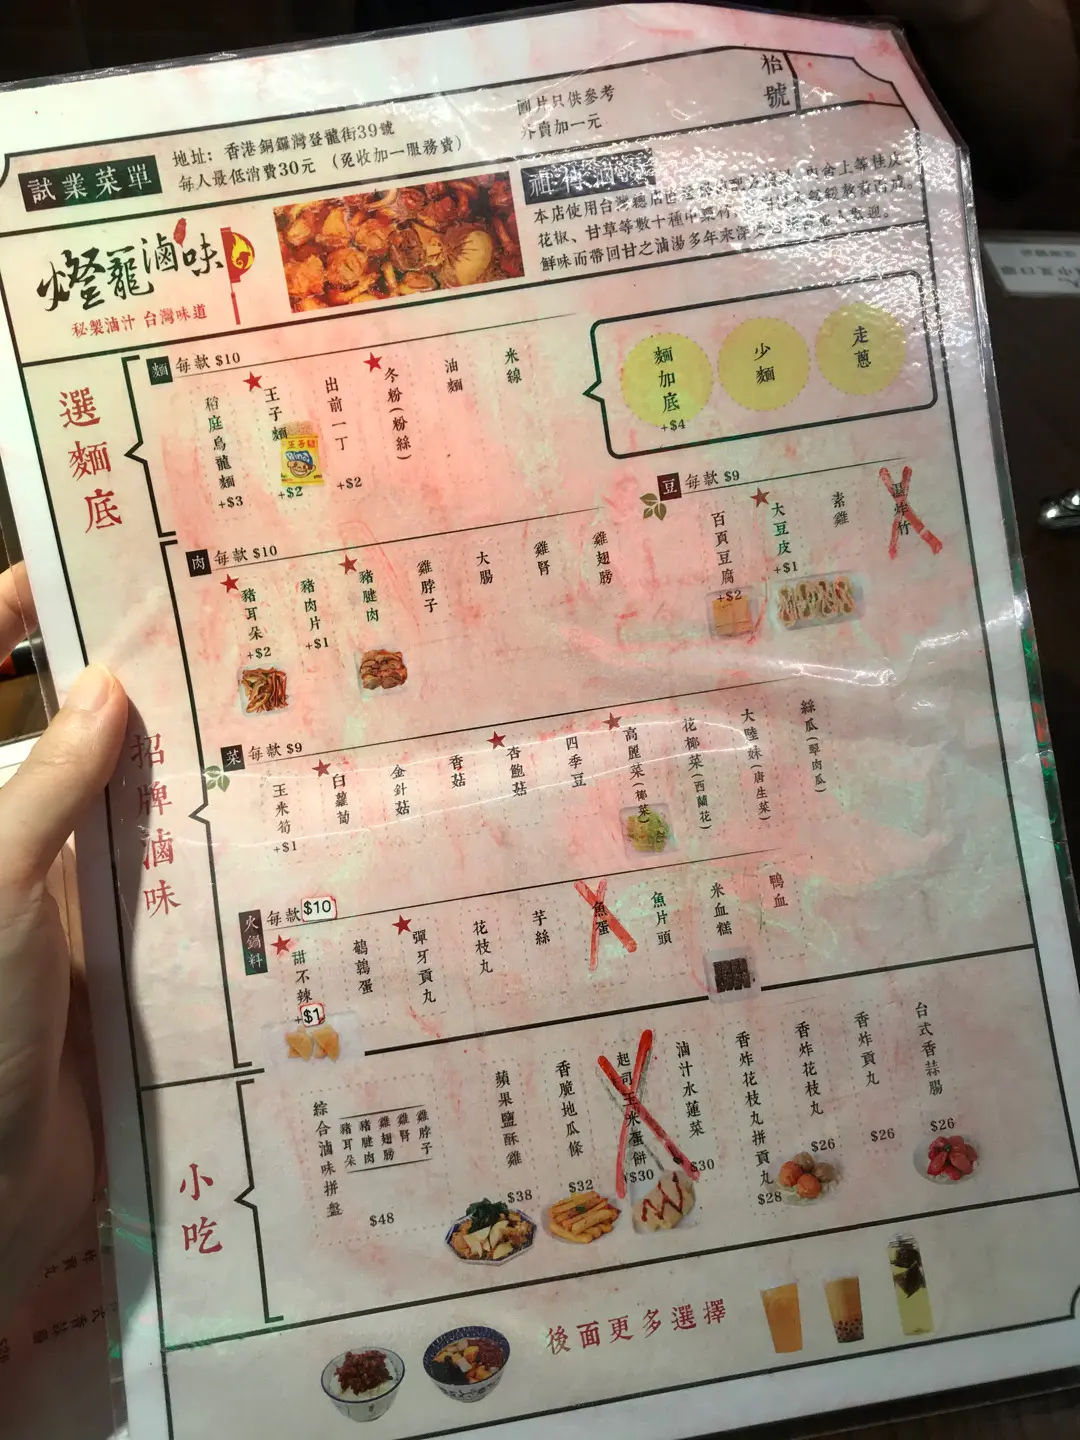 枱號
圖片只供參考
外賣加一元
試業菜單
地址：香港銅鑼灣登龍街39號
每人最低消費30元（免收加一服務費）
燈籠滷味
秘製滷汁 台灣味道
花椒、甘草等數十種中藥
鮮味而帶回甘之滷湯多年來深
選麵底
麵 每款 $10
稻庭烏龍麵 +$3
王子麵 +$2
出前一丁 +$2
冬粉(粉絲)
油麵
米線
麵加底 +$4
少麵
走蔥
招牌滷味
肉 每款 $10
豬耳朵 +$2
豬肉片 +$1
豬腱肉
雞脖子
大腸
雞腎
雞翅膀
豆 每款 $9
百頁豆腐 +$2
大豆皮 +$1
素雞
炸竹
菜 每款 $9
玉米筍 +$1
白蘿蔔
金針菇
香菇
杏鮑菇
四季豆
高麗菜(椰菜)
花椰菜(西蘭花)
大陸妹(唐生菜)
絲瓜(翠肉瓜)
火鍋料 每款 $10
甜不辣 +$1
鵪鶉蛋
彈牙貢丸
花枝丸
芋絲
魚蛋
魚片頭
米血糕
鴨血
小吃
綜合滷味拼盤
豬耳朵
豬腱肉
雞翅膀
雞腎
雞脖子
$48
蘋果鹽酥雞 $38
香脆地瓜條 $32
起司玉米蛋餅 $30
滷汁水蓮菜 $30
香炸花枝丸拼貢丸 $28
香炸花枝丸 $26
香炸貢丸 $26
台式香蒜腸 $26
後面更多選擇